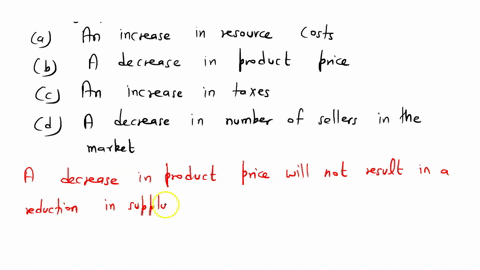 (a) An increase in resource costs
(b) A decrease in product price
(c) An increase in taxes
(d) A decrease in number of sellers in the
market
A decrease in product price will not result in a
reduction in supply